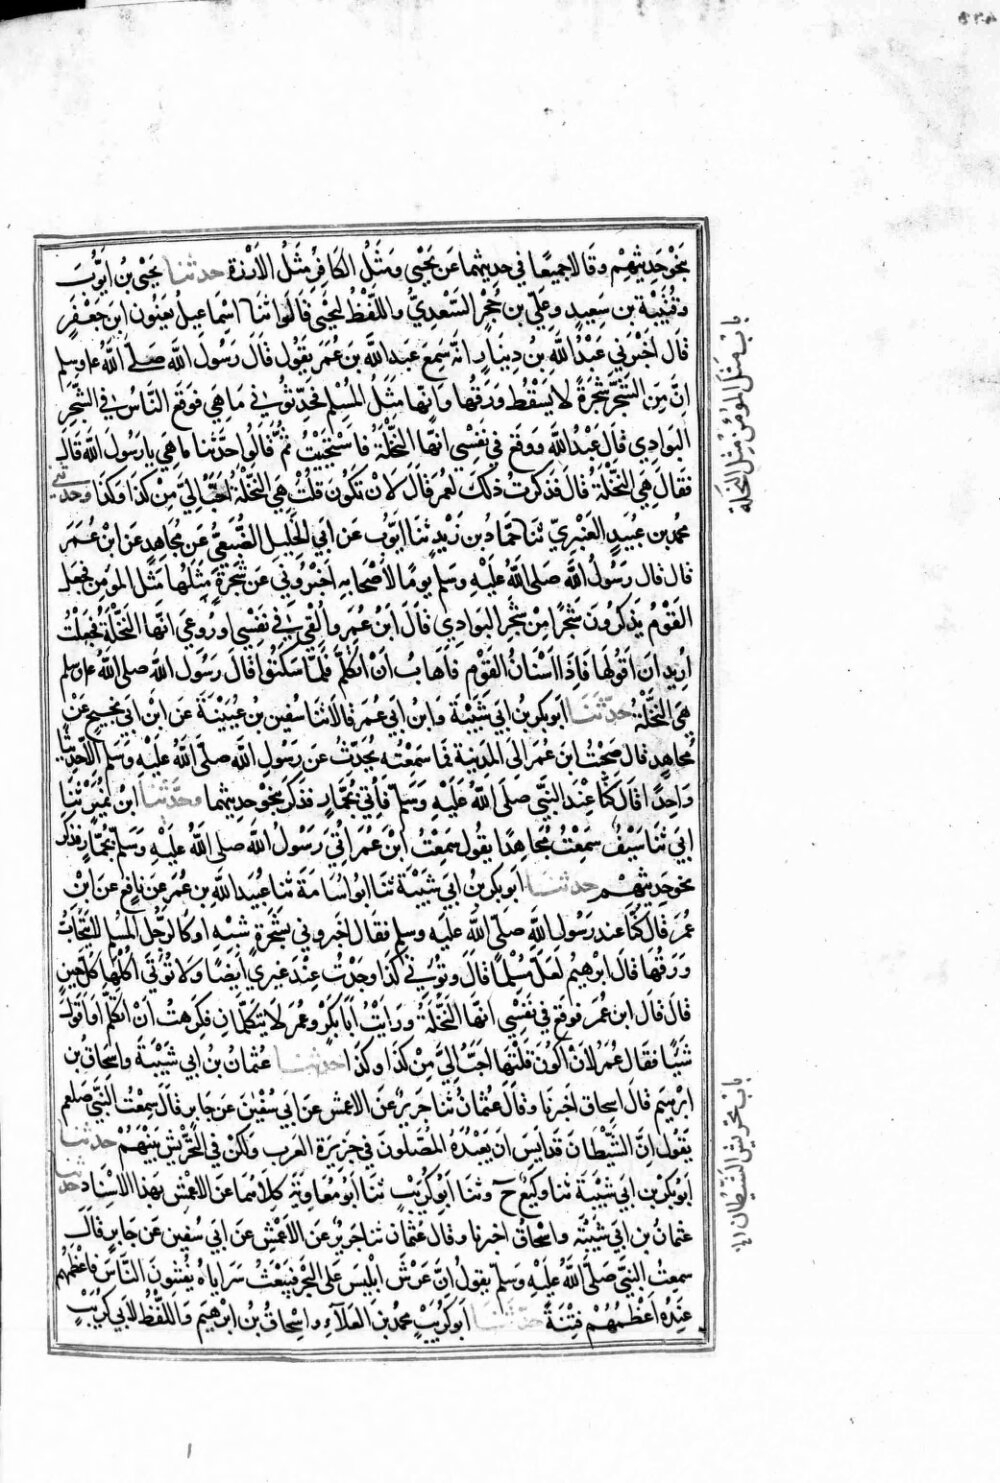 بنحو حديثهم وقالا جميعا في حديثهما عن يحيى ومثل الكافر مثل الارزة حدثنا يحيى بن ايوب
وقتيبة بن سعيد وعلي بن حجر السعدي واللفظ ليحيى قالوا ثنا اسماعيل يعنون ابن جعفر
قال اخبرني عبد الله بن دينار انه سمع عبد الله بن عمر يقول قال رسول الله صلى الله ع وسلم
ان من الشجر شجرة لا يسقط ورقها وانها مثل المسلم فحدثوني ما هي فوقع الناس في الشجر
البوادي قال عبد الله ووقع في نفسي انها النخلة فاستحييت ثم قالوا حدثنا ما هي يا رسول الله قال
فقال هي النخلة قال فذكرت ذلك لعمر قال لان تكون قلت هي النخلة احب الي من كذا وكذا وحدثني
محمد بن عبيد العنبري ثنا حماد بن زيد ثنا ايوب عن ابي الخليل الضبعي عن مجاهد عن ابن عمر
قال قال رسول الله صلى الله عليه وسلم يوما لاصحابه اخبروني عن شجرة مثلها مثل المومن فجعل
القوم يذكرون شجرا من شجر البوادي قال ابن عمر والقي في نفسي او روعي انها النخلة فجعلت
اريد ان اقولها فاذا اسنان القوم فاهاب ان اتكلم فلما سكتوا قال رسول الله صلى الله ع وسلم
هي النخلة حدثنا ابو بكر بن ابي شيبة وابن ابي عمر قالا ثنا سفين بن عيينة عن ابن ابي نجيح عن
مجاهد قال صحبت ابن عمر الى المدينة فما سمعته يحدث عن رسول الله صلى الله عليه وسلم الا حديثا
واحدا قال كنا عند النبي صلى الله عليه وسلم فاتي بجمار فذكر بنحو حديثهما وحدثنا ابن نمير ثنا
ابي ثنا سيف سمعت مجاهدا يقول سمعت ابن عمر اتي رسول الله صلى الله عليه وسلم بجمار فذكر
نحو حديثهم حدثنا ابو بكر بن ابي شيبة ثنا ابو اسامة ثنا عبيد الله بن عمر عن نافع عن ابن
عمر قال كنا عند رسول الله صلى الله عليه وسلم فقال اخبروني بشجرة شبه او كالرجل المسلم لا يتحات
ورقها قال ابرهيم لعل مسلما قال وتوتي كذا وجدت عند غيري ايضا ولا توتي اكلها كل حين
قال قال ابن عمر فوقع في نفسي انها النخلة ورايت ابا بكر وعمر لا يتكلمان فكرهت ان اتكلم او اقول
شيا فقال عمر لان اكون قلتها احب الي من كذا وكذا حدثنا عثمان بن ابي شيبة واسحاق بن
ابرهيم قال اسحاق اخبرنا وقال عثمان ثنا جرير عن الاعمش عن ابي سفين عن جابر قال سمعت النبي صلعم
يقول ان الشيطان قد ايس ان يعبده المصلون في جزيرة العرب ولكن في التحريش بينهم حدثنا
ابو بكر بن ابي شيبة ثنا وكيع ح وثنا ابو كريب ثنا ابو معاوية كلاهما عن الاعمش بهذا الاسناد حدثنا
عثمان بن ابي شيبة واسحاق اخبرنا وقال عثمان ثنا جرير عن الاعمش عن ابي سفين عن جابر قال
سمعت النبي صلى الله عليه وسلم يقول ان عرش ابليس على البحر فيبعث سراياه يفتنون الناس فاعظمهم
عنده اعظمهم فتنة حدثنا ابو كريب محمد بن العلاء واسحاق بن ابرهيم واللفظ لابي كريب
باب مثل المؤمن مثل النخلة
باب تحريش الشيطان